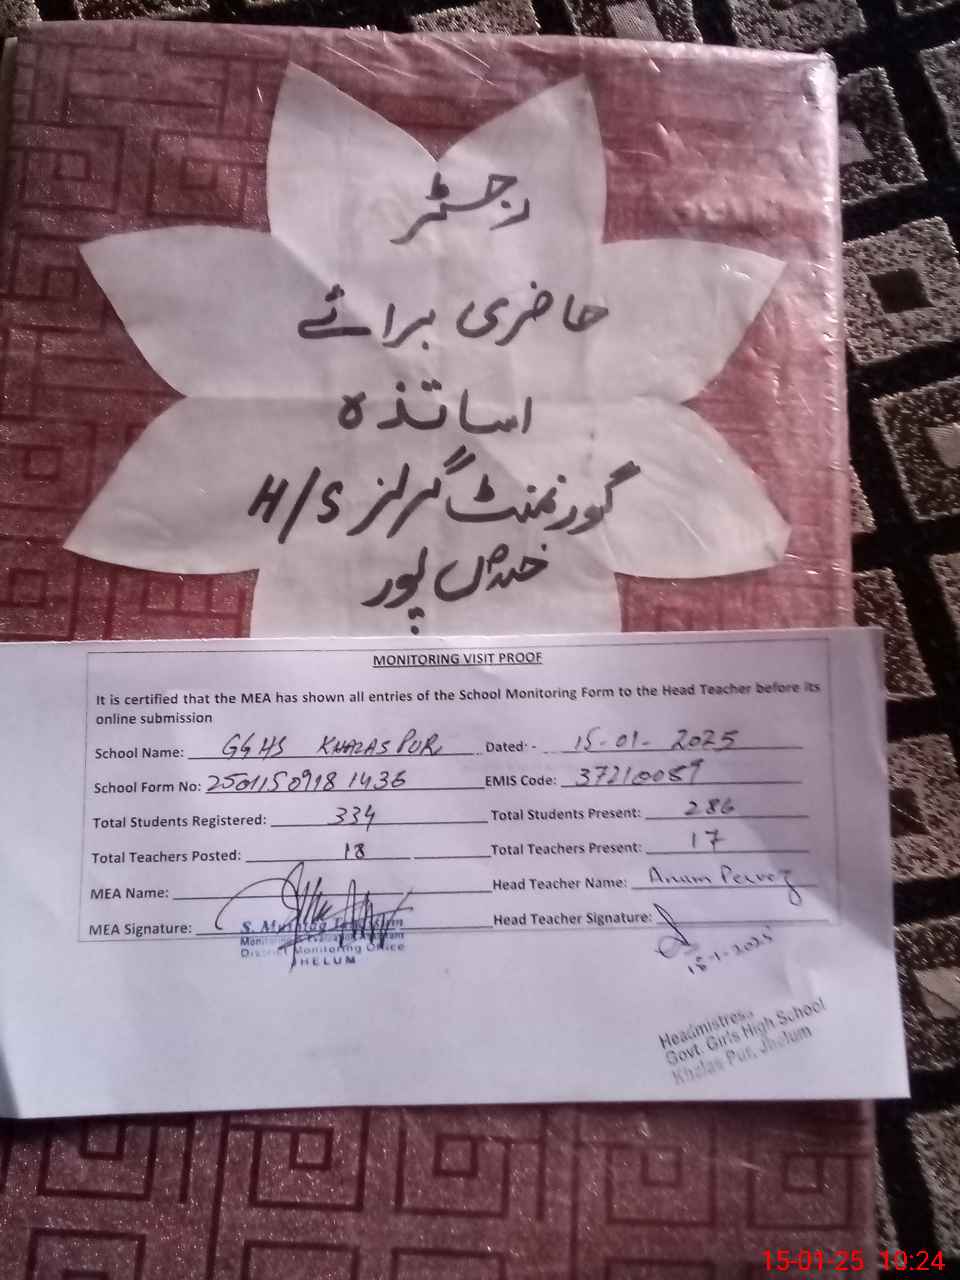 رجسٹر
حاضری برائے
اساتذہ
گورنمنٹ گرلز H/S
خلاص پور
MONITORING VISIT PROOF
It is certified that the MEA has shown all entries of the School Monitoring Form to the Head Teacher before its
online submission
School Name: GGHS KHALAS PUR Dated: - 15-01-2025
School Form No: 250115 0918 1436 EMIS Code: 37210059
Total Students Registered: 334 Total Students Present: 286
Total Teachers Posted: 18 Total Teachers Present: 17
MEA Name: Head Teacher Name: Anam Pervez
MEA Signature: Head Teacher Signature:
15-1-2025
Monitoring & Evaluation Assistant
District Monitoring Office
JHELUM
Headmistress
Govt. Girls High School
Khalas Pur, Jhelum
15-01-25 10:24